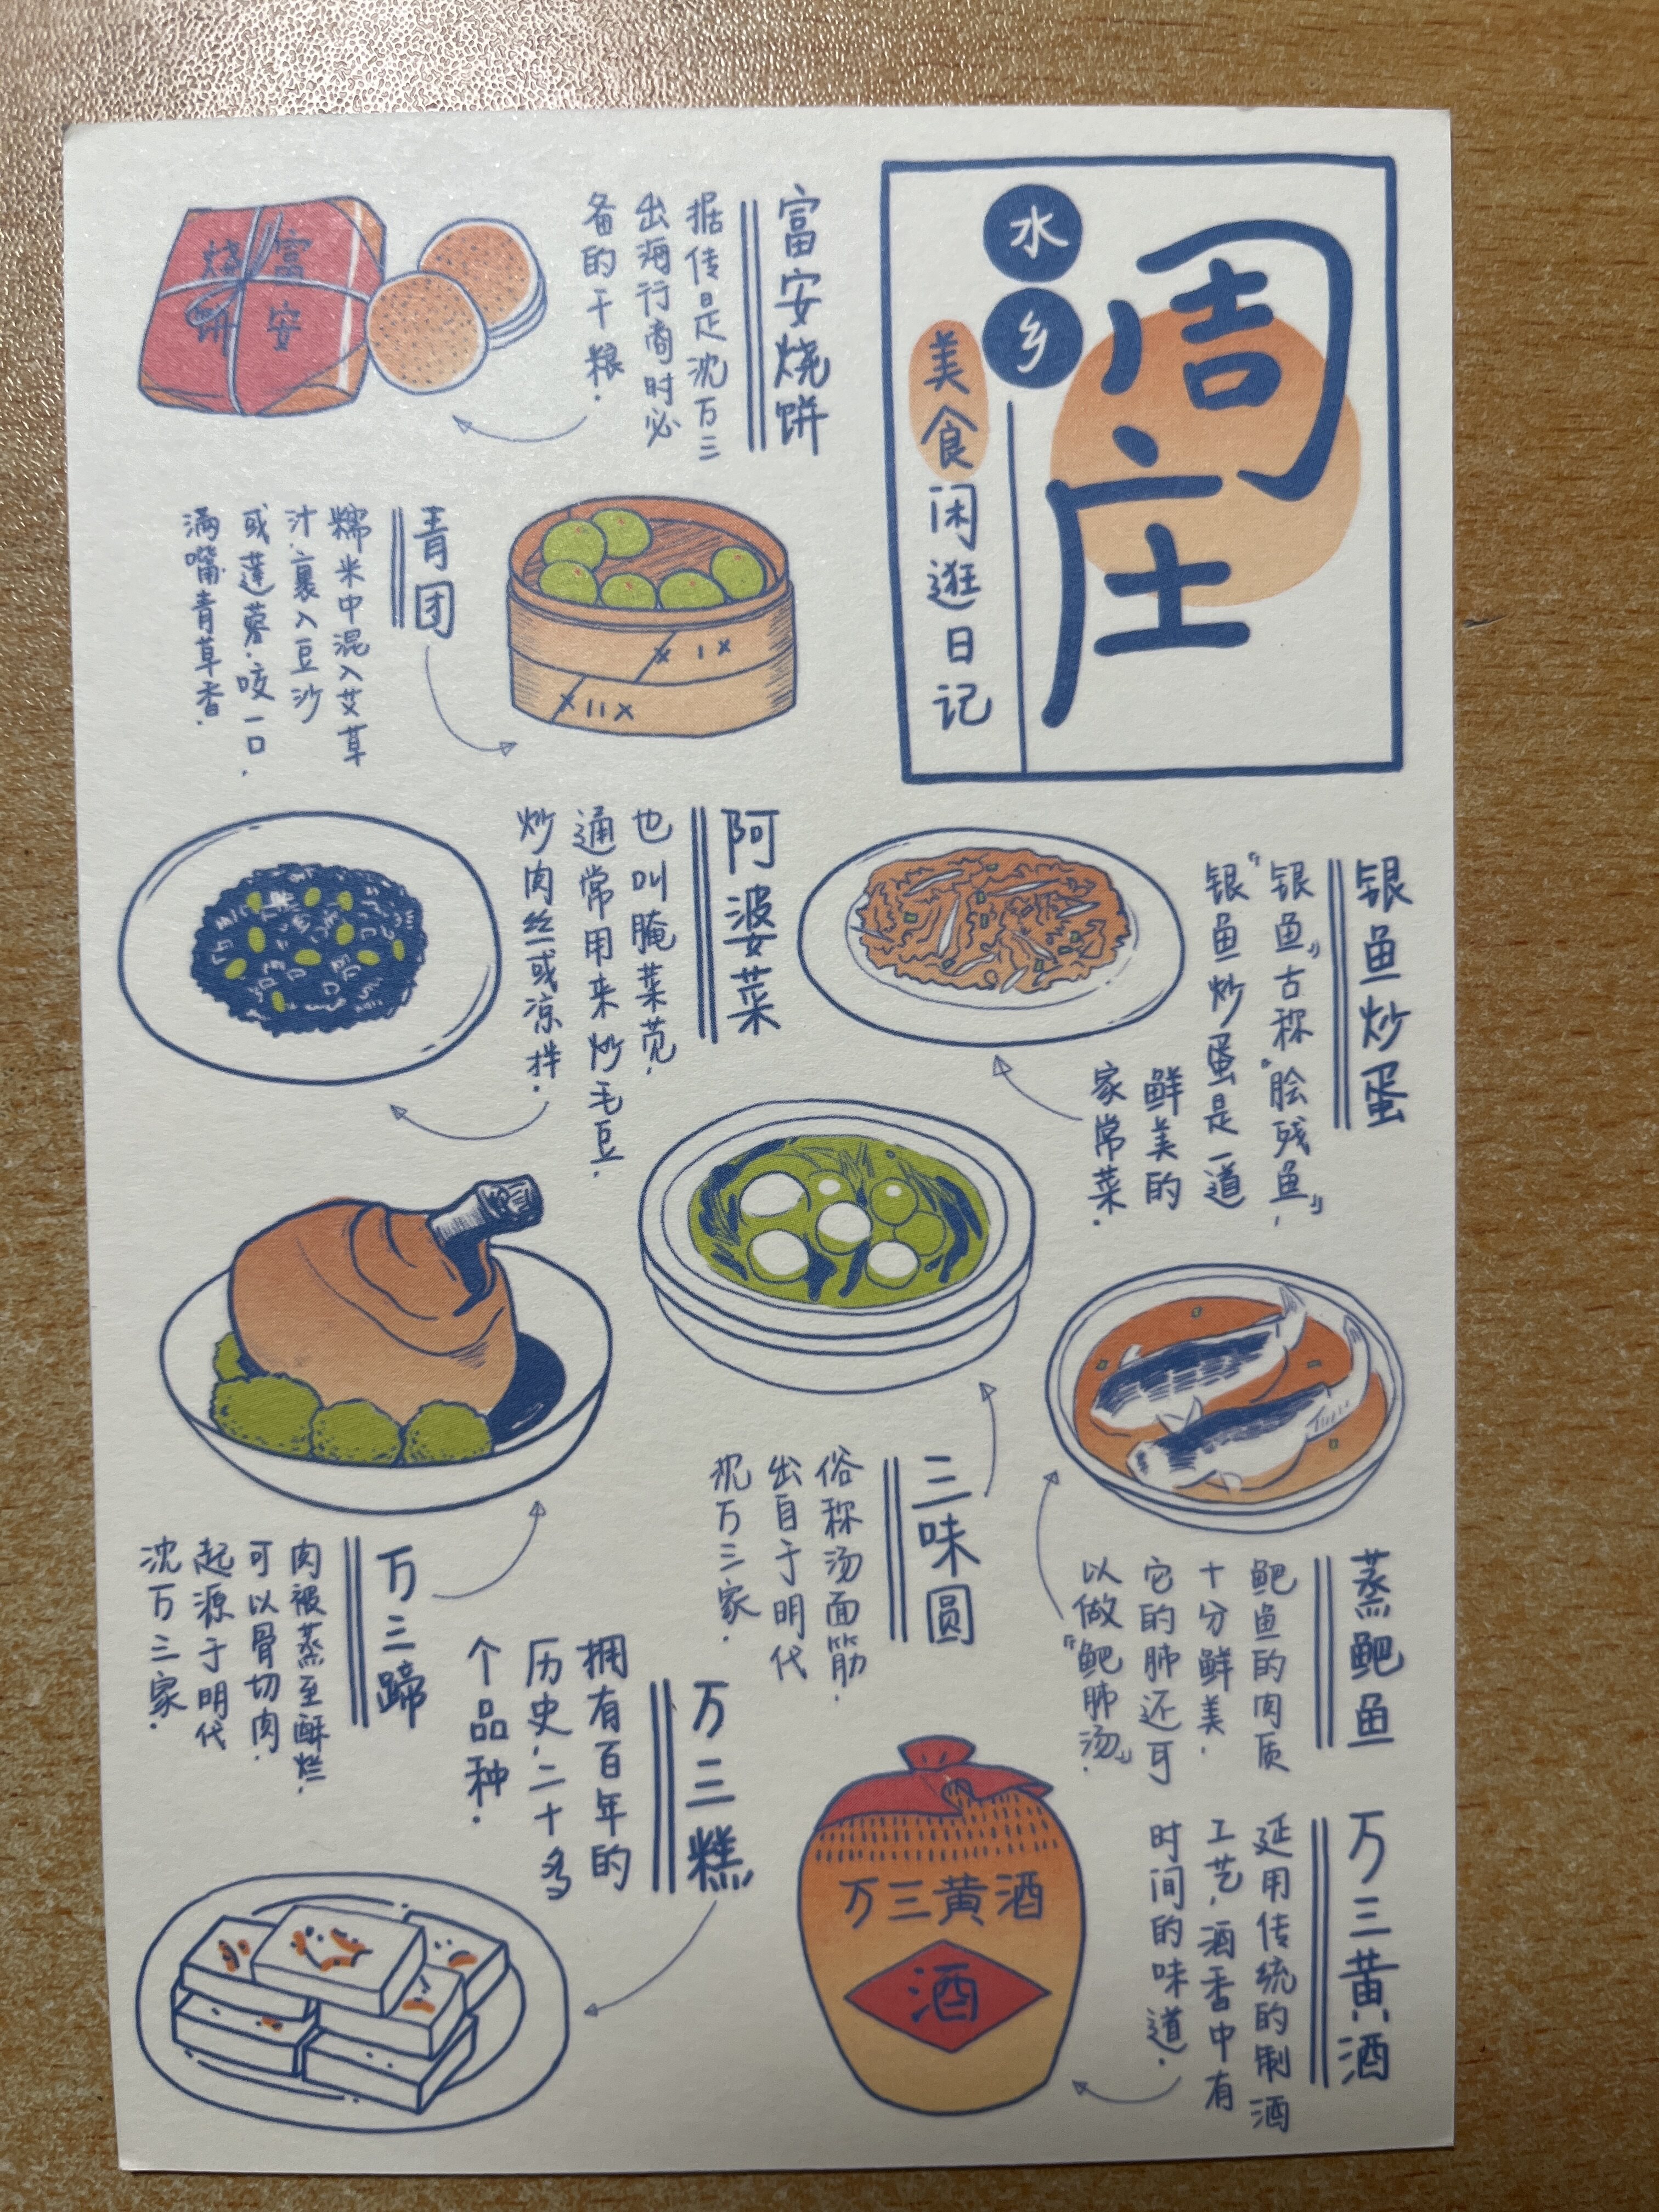 周庄
水乡
美食闲逛日记
富安烧饼
据传是沈万三
出海行商时必
备的干粮.
富安
烧饼
青团
糯米中混入艾草
汁.裹入豆沙
或莲蓉.咬一口.
满嘴青草香.
银鱼炒蛋
“银鱼”古称“脍残鱼”,
银鱼炒蛋是一道
鲜美的
家常菜.
阿婆菜
也叫腌菜苋.
通常用来炒毛豆.
炒肉丝或凉拌.
三味圆
俗称汤面筋.
出自于明代
沈万三家.
万三蹄
肉被蒸至酥烂.
可以骨切肉.
起源于明代
沈万三家.
蒸鲃鱼
鲃鱼的肉质
十分鲜美.
它的肺还可
以做“鲃肺汤”.
万三糕
拥有百年的
历史.二十多
个品种.
万三黄酒
延用传统的制酒
工艺.酒香中有
时间的味道.
万三黄酒
酒